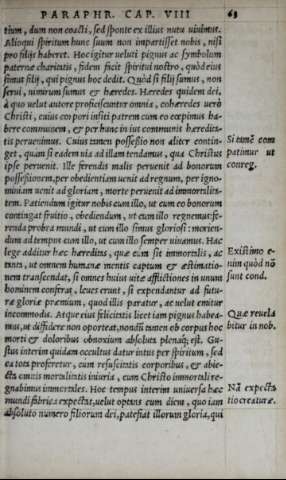 PARAPHR. CAP. VIII 63
tium, dum non coacti, sed sponte ex illius nutu viuimus.
Alioqui spiritum hunc suum non impartisset nobis, nisi
pro filijs haberet. Hoc igitur veluti pignus ac symbolum
paternæ charitatis, fidem facit spiritui nostro, quòd eius
simus filij, qui pignus hoc dedit. Quòd si filij sumus, non
serui, nimirum sumus & hæredes. Hæredes quidem dei,
à quo uelut autore proficiscuntur omnia, cohæredes uerò
Christi, cuius corpori insiti patrem cum eo cœpimus ha-
bere communem, & per hunc in ius communis hæredita-
tis peruenimus. Cuius tamen possessio non aliter contin-
get, quam si eadem uia ad illam tendamus, qua Christus
ipse peruenit. Ille ferendis malis peruenit ad bonorum
possessionem, per obedientiam uenit ad regnum, per igno-
miniam uenit ad gloriam, morte peruenit ad immortalita-
tem. Patiendum igitur nobis cum illo, ut cum eo bonorum
contingat fruitio, obediendum, ut cum illo regnemus: fe-
renda probra mundi, ut cum illo simus gloriosi: morien-
dum ad tempus cum illo, ut cum illo semper uiuamus. Hac
lege additur hæc hæreditas, quæ cum sit immortalis, ac
tanta, ut omnem humanæ mentis captum & æstimatio-
nem transcendat, si omnes huius uitæ afflictiones in unum
hominem conferas, leues erunt, si expendantur ad futu-
ræ gloriæ præmium, quod illis paratur, ac uelut emitur
incommodis. Atque eius felicitatis licet iam pignus habea-
mus, ut diffidere non oporteat, nondũ tamen ob corpus hoc
morti & doloribus obnoxium absoluta plenaq; est. Gu-
stus interim quidam occultus datur intus per spiritum, sed
ea tota proferetur, cum resuscitatis corporibus, & abie-
cta omnis mortalitatis iniuria, cum Christo immortali re-
gnabimus immortales. Hoc tempus interim uniuersa hæc
mundi fabrica expectat, uelut optans eum diem, quo iam
absoluto numero filiorum dei, patefiat illorum gloria, qui
Si tamẽ com
patimur ut
conreg.
Existimo e-
nim quòd nõ
sunt cond.
Quæ reuela
bitur in nob.
Nã expecta
tio creaturæ.